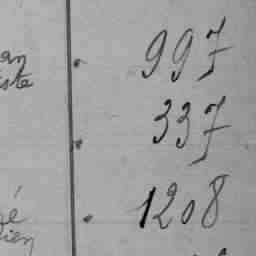 an . 997
iste
. 337
é . 1208
ien